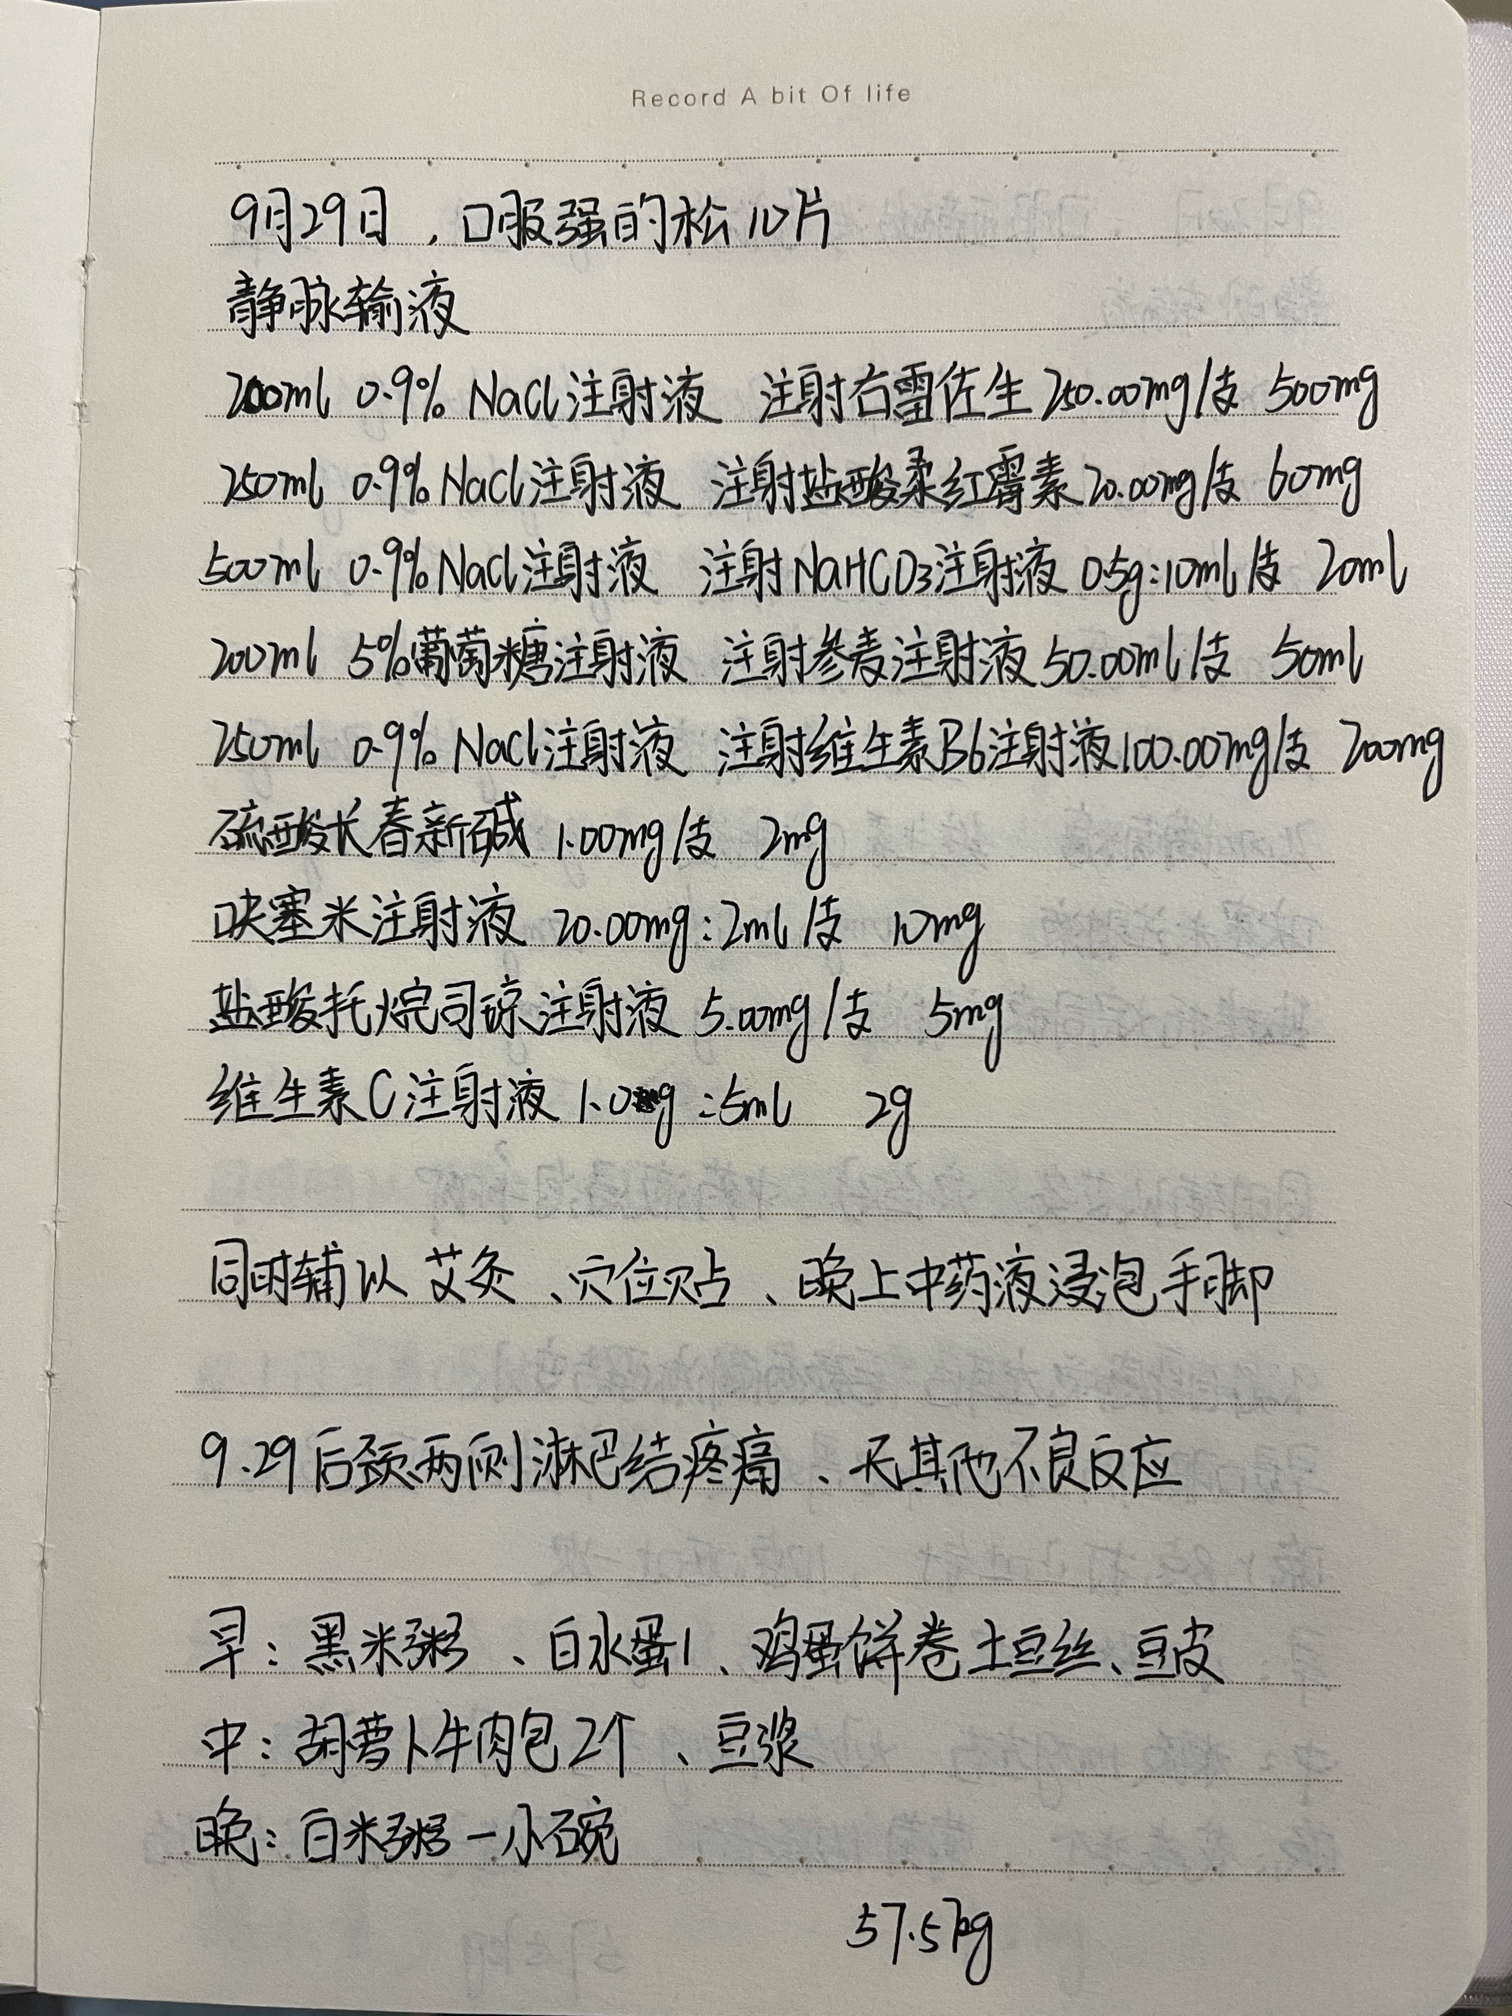 Record A bit Of life
9月29日，口服强的松10片
静脉输液
200ml 0.9% NaCl注射液 注射右雷佐生250.00mg/支 500mg
250ml 0.9% NaCl注射液 注射盐酸柔红霉素20.00mg/支 60mg
500ml 0.9% NaCl注射液 注射NaHCO3注射液 0.5g:10ml/支 20ml
200ml 5%葡萄糖注射液 注射参麦注射液50.00ml/支 50ml
250ml 0.9% NaCl注射液 注射维生素B6注射液100.00mg/支 200mg
硫酸长春新碱 1.00mg/支 2mg
呋塞米注射液 20.00mg:2ml/支 10mg
盐酸托烷司琼注射液 5.00mg/支 5mg
维生素C注射液 1.0g:5ml 2g
同时辅以 艾灸、穴位贴、晚上中药液浸泡手脚
9.29后颈两侧淋巴结疼痛、无其他不良反应
早：黑米粥、白水蛋1、鸡蛋饼卷土豆丝、豆皮
中：胡萝卜牛肉包2个、豆浆
晚：白米粥一小碗
57.5kg